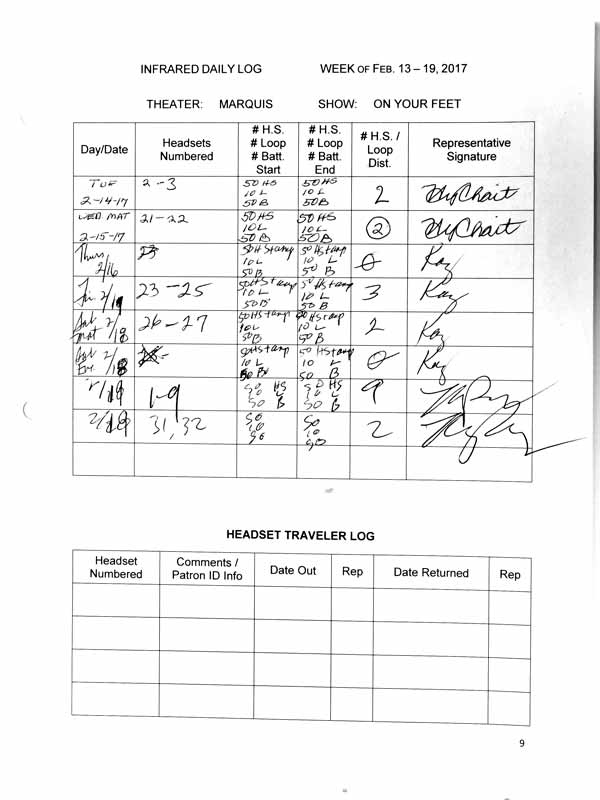 INFRARED DAILY LOG WEEK OF FEB. 13 – 19, 2017
THEATER: MARQUIS SHOW: ON YOUR FEET
Day/Date Headsets Numbered # H.S. # Loop # Batt. Start # H.S. # Loop # Batt. End # H.S. / Loop Dist. Representative Signature
TUE 2-14-17 2-3 50 HS 10 L 50 B 50 HS 10 L 50 B 2
WED MAT 2-15-17 21-22 50 HS 10 L 50 B 50 HS 10 L 50 B 2
Thurs 2/16 50 HS 10 L 50 B 50 HS 10 L 50 B 0 Kay
Fri 2/19 23-25 50 HS 10 L 50 B 50 HS 10 L 50 B 3 Kay
Sat 2/18 mat 26-27 50 HS 10 L 50 B 50 HS 10 L 50 B 2 Kay
Sat 2/18 Eve. 50 HS 10 L 50 B 50 HS 10 L 50 B 0 Kay
2/19 1-9 50 HS 10 L 50 B 50 HS 10 L 50 B 9
2/19 31, 32 50 10 50 50 10 50 2
HEADSET TRAVELER LOG
Headset Numbered Comments / Patron ID Info Date Out Rep Date Returned Rep
9